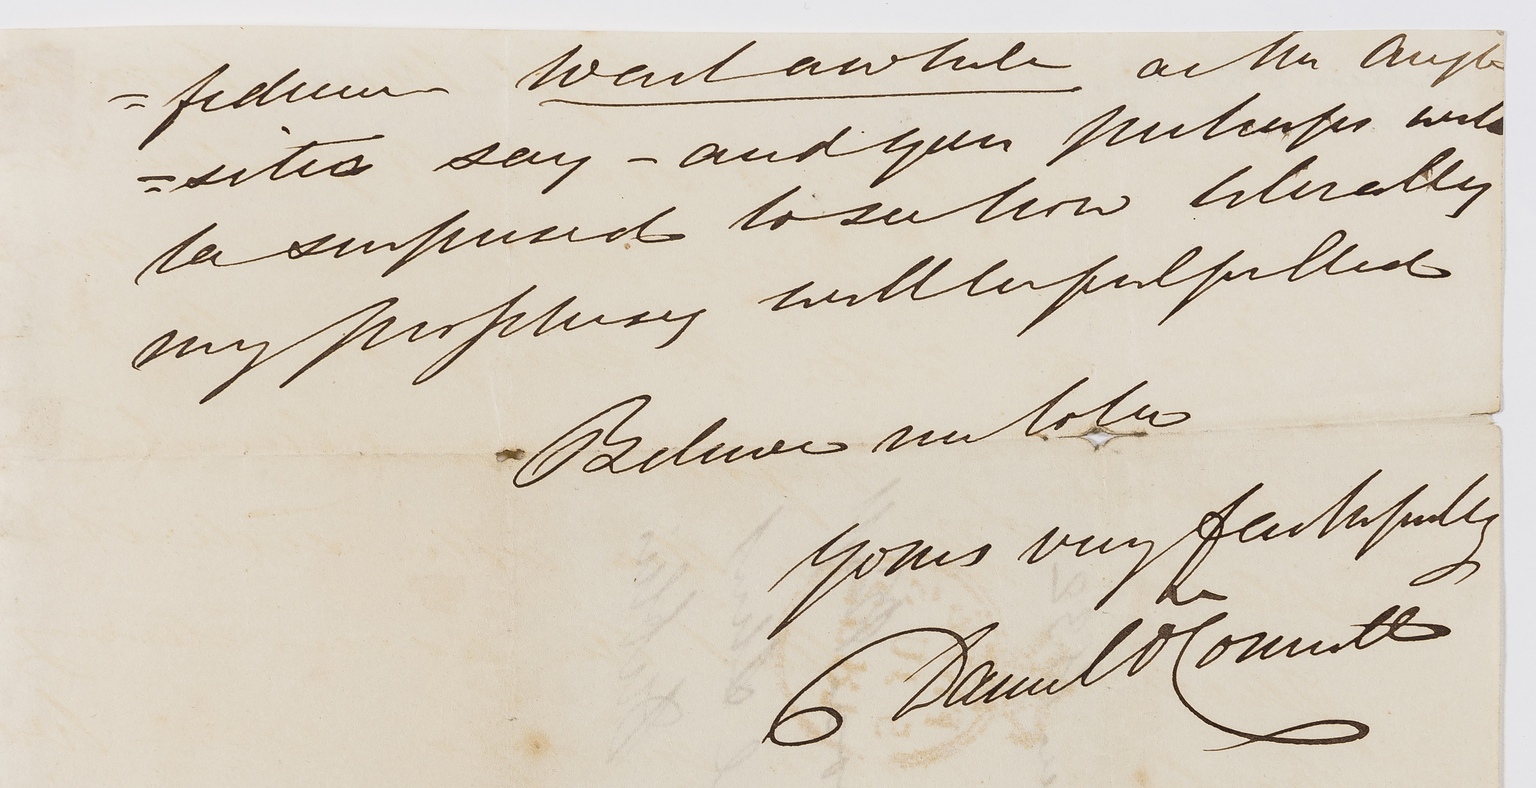 =fidence wait awhile as the Angle
=sites say - and you perhaps will
be surprised to see how literally
my prophecy will be fulfilled
Believe me to be
yours very faithfully
Daniel O'Connell